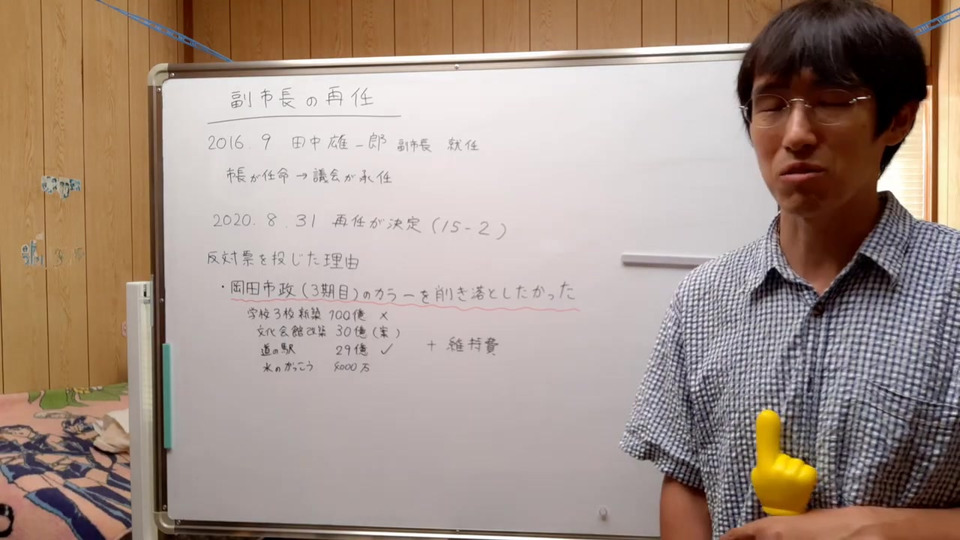 副市長の再任
2016.9 田中雄一郎 副市長 就任
市長が任命→議会が承任
2020.8.31 再任が決定(15-2)
反対票を投じた理由
・岡田市政(3期目)のカラーを削き落としたかった
学校3校新築 100億 ×
文化会館改築 30億(案)
道の駅 29億 ✓
+ 維持費
水のがっこう 4000万